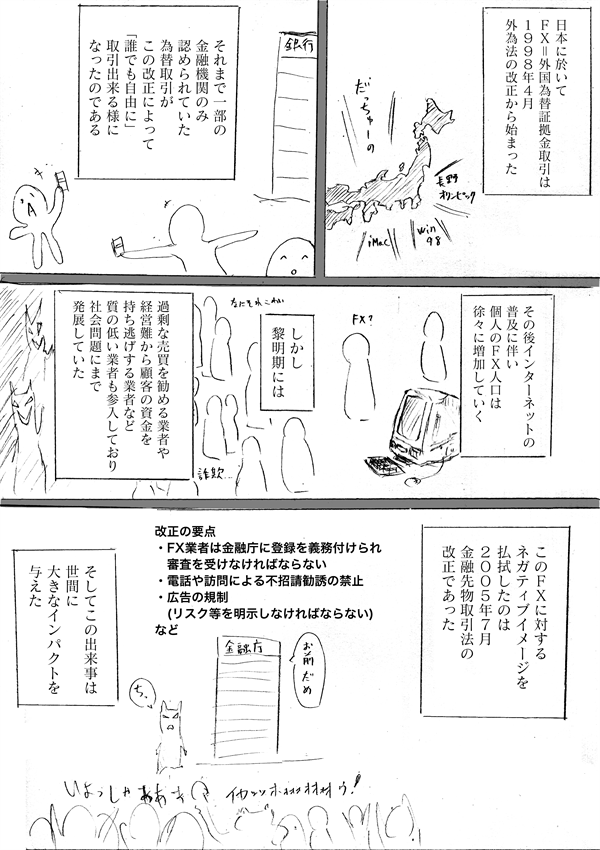 日本に於いて
FX=外国為替証拠金取引は
1998年4月
外為法の改正から始まった
だっちゅーの
長野
オリンピック
iMac
Win
98
銀行
それまで一部の
金融機関のみ
認められていた
為替取引が
この改正によって
「誰でも自由に」
取引出来る様に
なったのである
その後インターネットの
普及に伴い
個人のFX人口は
徐々に増加していく
FX?
なにそれこわい
しかし
黎明期には
過剰な売買を勧める業者や
経営難から顧客の資金を
持ち逃げする業者など
質の低い業者も参入しており
社会問題にまで
発展していた
詐欺…
このFXに対する
ネガティブイメージを
払拭したのは
2005年7月
金融先物取引法の
改正であった
改正の要点
・FX業者は金融庁に登録を義務付けられ
審査を受けなければならない
・電話や訪問による不招請勧誘の禁止
・広告の規制
(リスク等を明示しなければならない)
など
金融庁
お前だめ
ち、
そしてこの出来事は
世間に
大きなインパクトを
与えた
いよっしゃああ